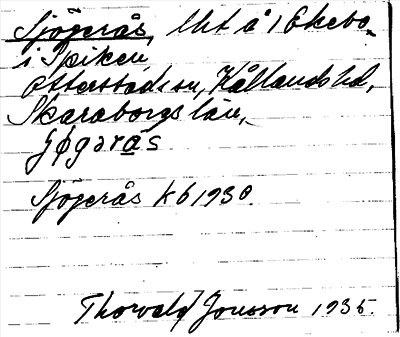 Sjögerås, lht å 1 Ekebo,
i Spiken,
Otterstads sn, Kållands hd,
Skaraborgs län,
jøgərås
Sjögerås kb 1930.
Thorvald Jonsson 1935.